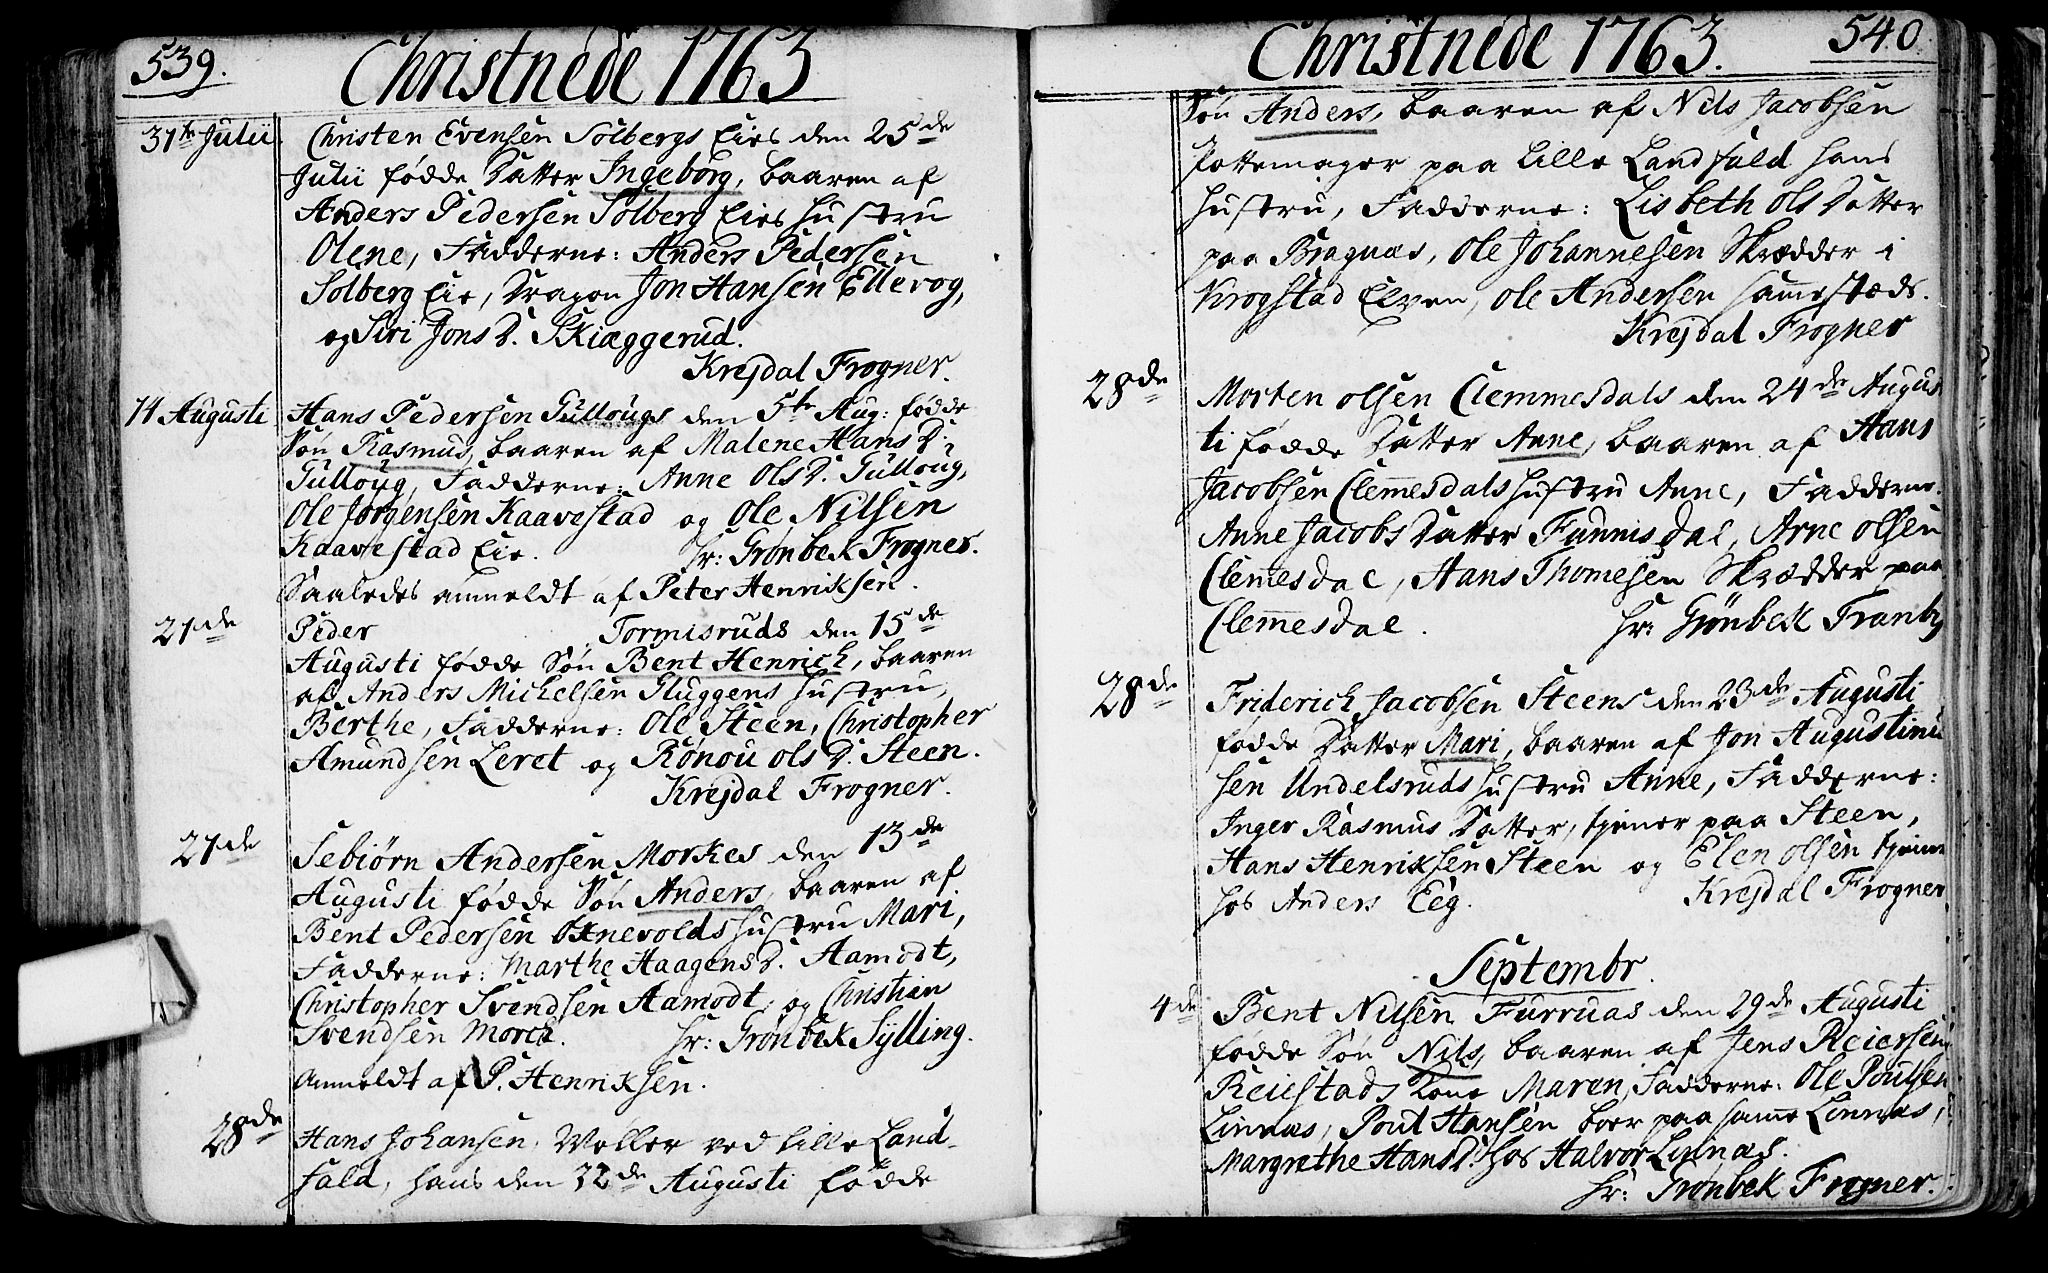 539.
Christnede 1763
31te Julii. Christen Evensen Solbergs Eies den 25de
Julii fødde Datter Ingeborg, baaren af
Anders Pedersen Solberg Eies Hustru
Olene, Fadderne: Anders Pedersen
Solberg Eie, Dragon Jon Hansen Ellevog,
og Siri Jons D. Skiæggerud.
Krejdal Frogner.
14 Augusti Hans Pedersen Gullougs den 5te Aug: fødde
Søn Rasmus, baaren af Malene Hans D.
Gulloug, Fadderne: Anne Ols D. Gulloug,
Ole Jørgensen Kaavestad og Ole Nilsen
Kaavestad Eie. Hr: Grønbek Frogner.
Saaledes anmeldt af Peter Henriksen.
21de Peder Tormisruds den 15de
Augusti fødde Søn Bent Henrich, baaren
af Anders Michelsen Gluggens Hustru,
Berthe, Fadderne: Ole Steen, Christopher
Amundsen Leret og Rønou Ols D. Steen.
Krejdal Frogner.
21de Sebiørn Andersen Morkes den 13de
Augusti fødde Søn Anders, baaren af
Bent Pedersen Oxnevolds Hustru Mari,
Fadderne: Marthe Haagens D. Aamodt,
Christopher Svendsen Aamodt, og Christian
Svendsen Morck. Hr: Grønbek Sylling.
Anmeldt af P. Henriksen.
28de Hans Johansen, Møller ved lille Land-
fald, hans den 22de Augusti fødde
Christnede 1763. 540
Søn Anders, baaren af Nils Jacobsen
Pottemager paa lille Landfald hans
Hustru, Fadderne: Lisbeth Ols Datter
paa Bragnæs, Ole Johannesen Skrædder i
Krogstad Elven, Ole Andersen sammestæds.
Krejdal Frogner
28de Morten Olsen Clemmesdals den 24de Augus
ti fødde Datter Anne, baaren af Hans
Jacobsen Clemesdals Hustru Anne, Fadderne.
Anne Jacobs Datter Funnisdal, Arne Olsen
Clemesdal, Hans Thomesen Skrædder paa
Clemesdal. Hr: Grønbek Tranby
28de Friderich Jacobsen Steens den 23de Augusti
fødde Datter Mari, baaren af Jon Augustinu
sen Undelsruds Hustru Anne, Fadderne:
Inger Rasmus Datter, tjener paa Steen,
Hans Henriksen Steen og Elen Olsen tjener
hos Anders Eeg. Krejdal Frogner
Septembr.
4de Bent Nilsen Furruas den 29de Augusti
fødde Søn Nils, baaren af Jens Reiersen
Reiestads Kone Maren, Fadderne: Ole Poulsen
Linnæs, Poul Hansen boer paa samme Linnæs,
Margrethe Hans D. hos Halvor Linnæs.
Hr: Grønbek Frogner.